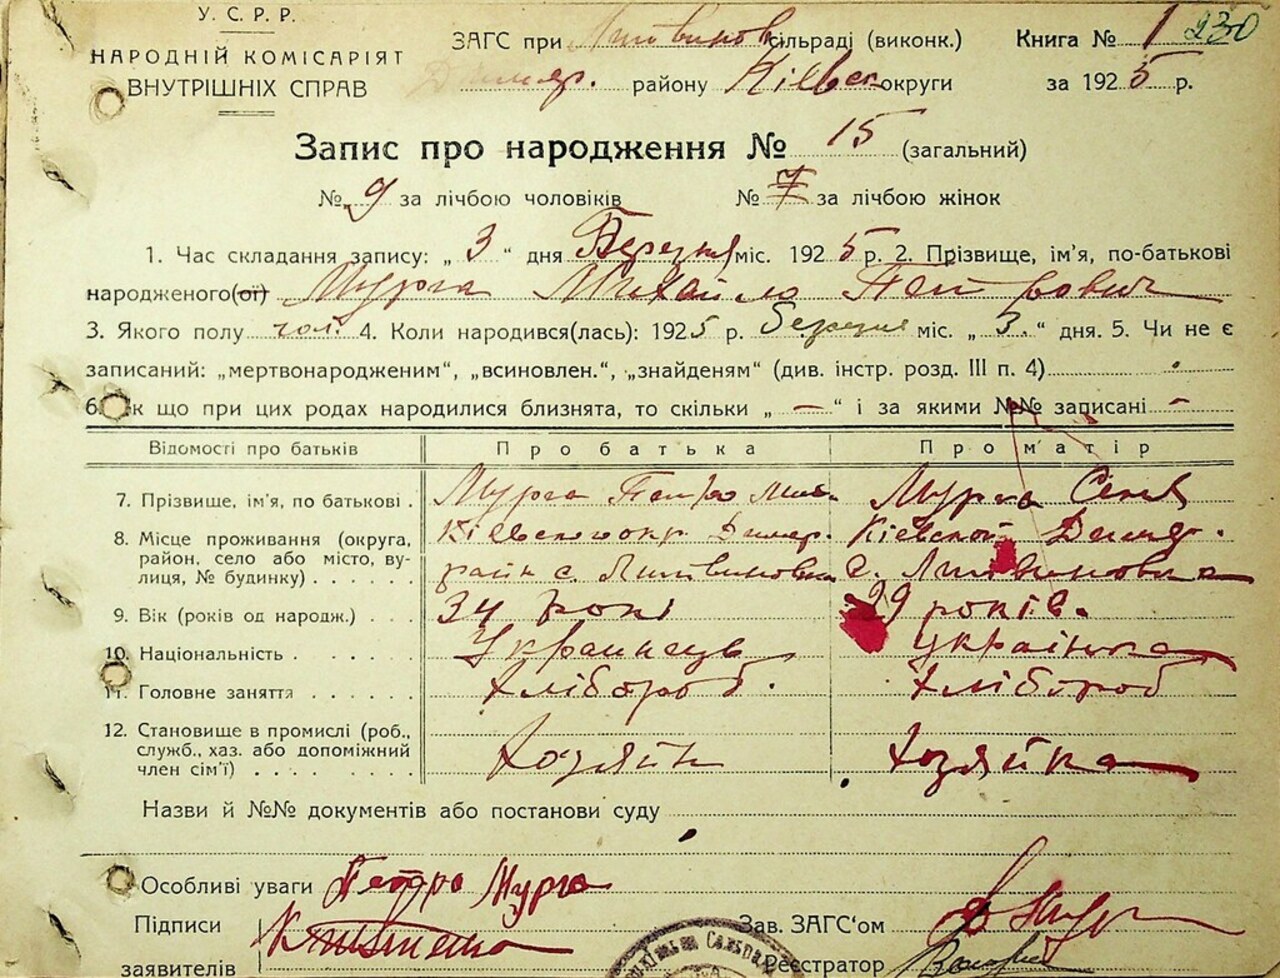 У. С. Р. Р.
НАРОДНІЙ КОМІСАРІЯТ
ВНУТРІШНІХ СПРАВ
ЗАГС при Литвинов сільраді (виконк.) Книга № 1 230
Димер. району Кіевск округи за 1925 р.
Запис про народження № 15 (загальний)
№ 9 за лічбою чоловіків № 7 за лічбою жінок
1. Час складання запису: „ 3 “ дня Березня міс. 1925 р. 2. Прізвище, ім'я, по-батькові
народженого(ої) Мурга Михайло Петрович
3. Якого полу чол. 4. Коли народився(лась): 1925 р. березня міс. „ 3. “ дня. 5. Чи не є
записаний: „мертвонародженим“, „всиновлен.“, „знайденям“ (див. інстр. розд. III п. 4)
6. к що при цих родах народилися близнята, то скільки „ — “ і за якими №№ записані -
Відомості про батьків Про батька Про матір
7. Прізвище, ім'я, по батькові . Мурга Петро Мурга
8. Місце проживання (округа, Кіевского окр Димер. Кіевской Димер.
район, село або місто, ву- район с. Литвиновка с. Литвиновка
лиця, № будинку) . . . . . .
9. Вік (років од народж.) . . . 34 рокі 29 років.
10. Національність . . . . . . Украинець Українка
11. Головне заняття . . . . . . Хлібороб. Хлібороб
12. Становище в промислі (роб.,
служб., хаз. або допоміжний Хозяйн Хозяйка
член сім'ї) . . . . . . . .
Назви й №№ документів або постанови суду
Особливі уваги Петро Мурга
Підписи Зав. ЗАГС'ом
заявителів Реєстратор